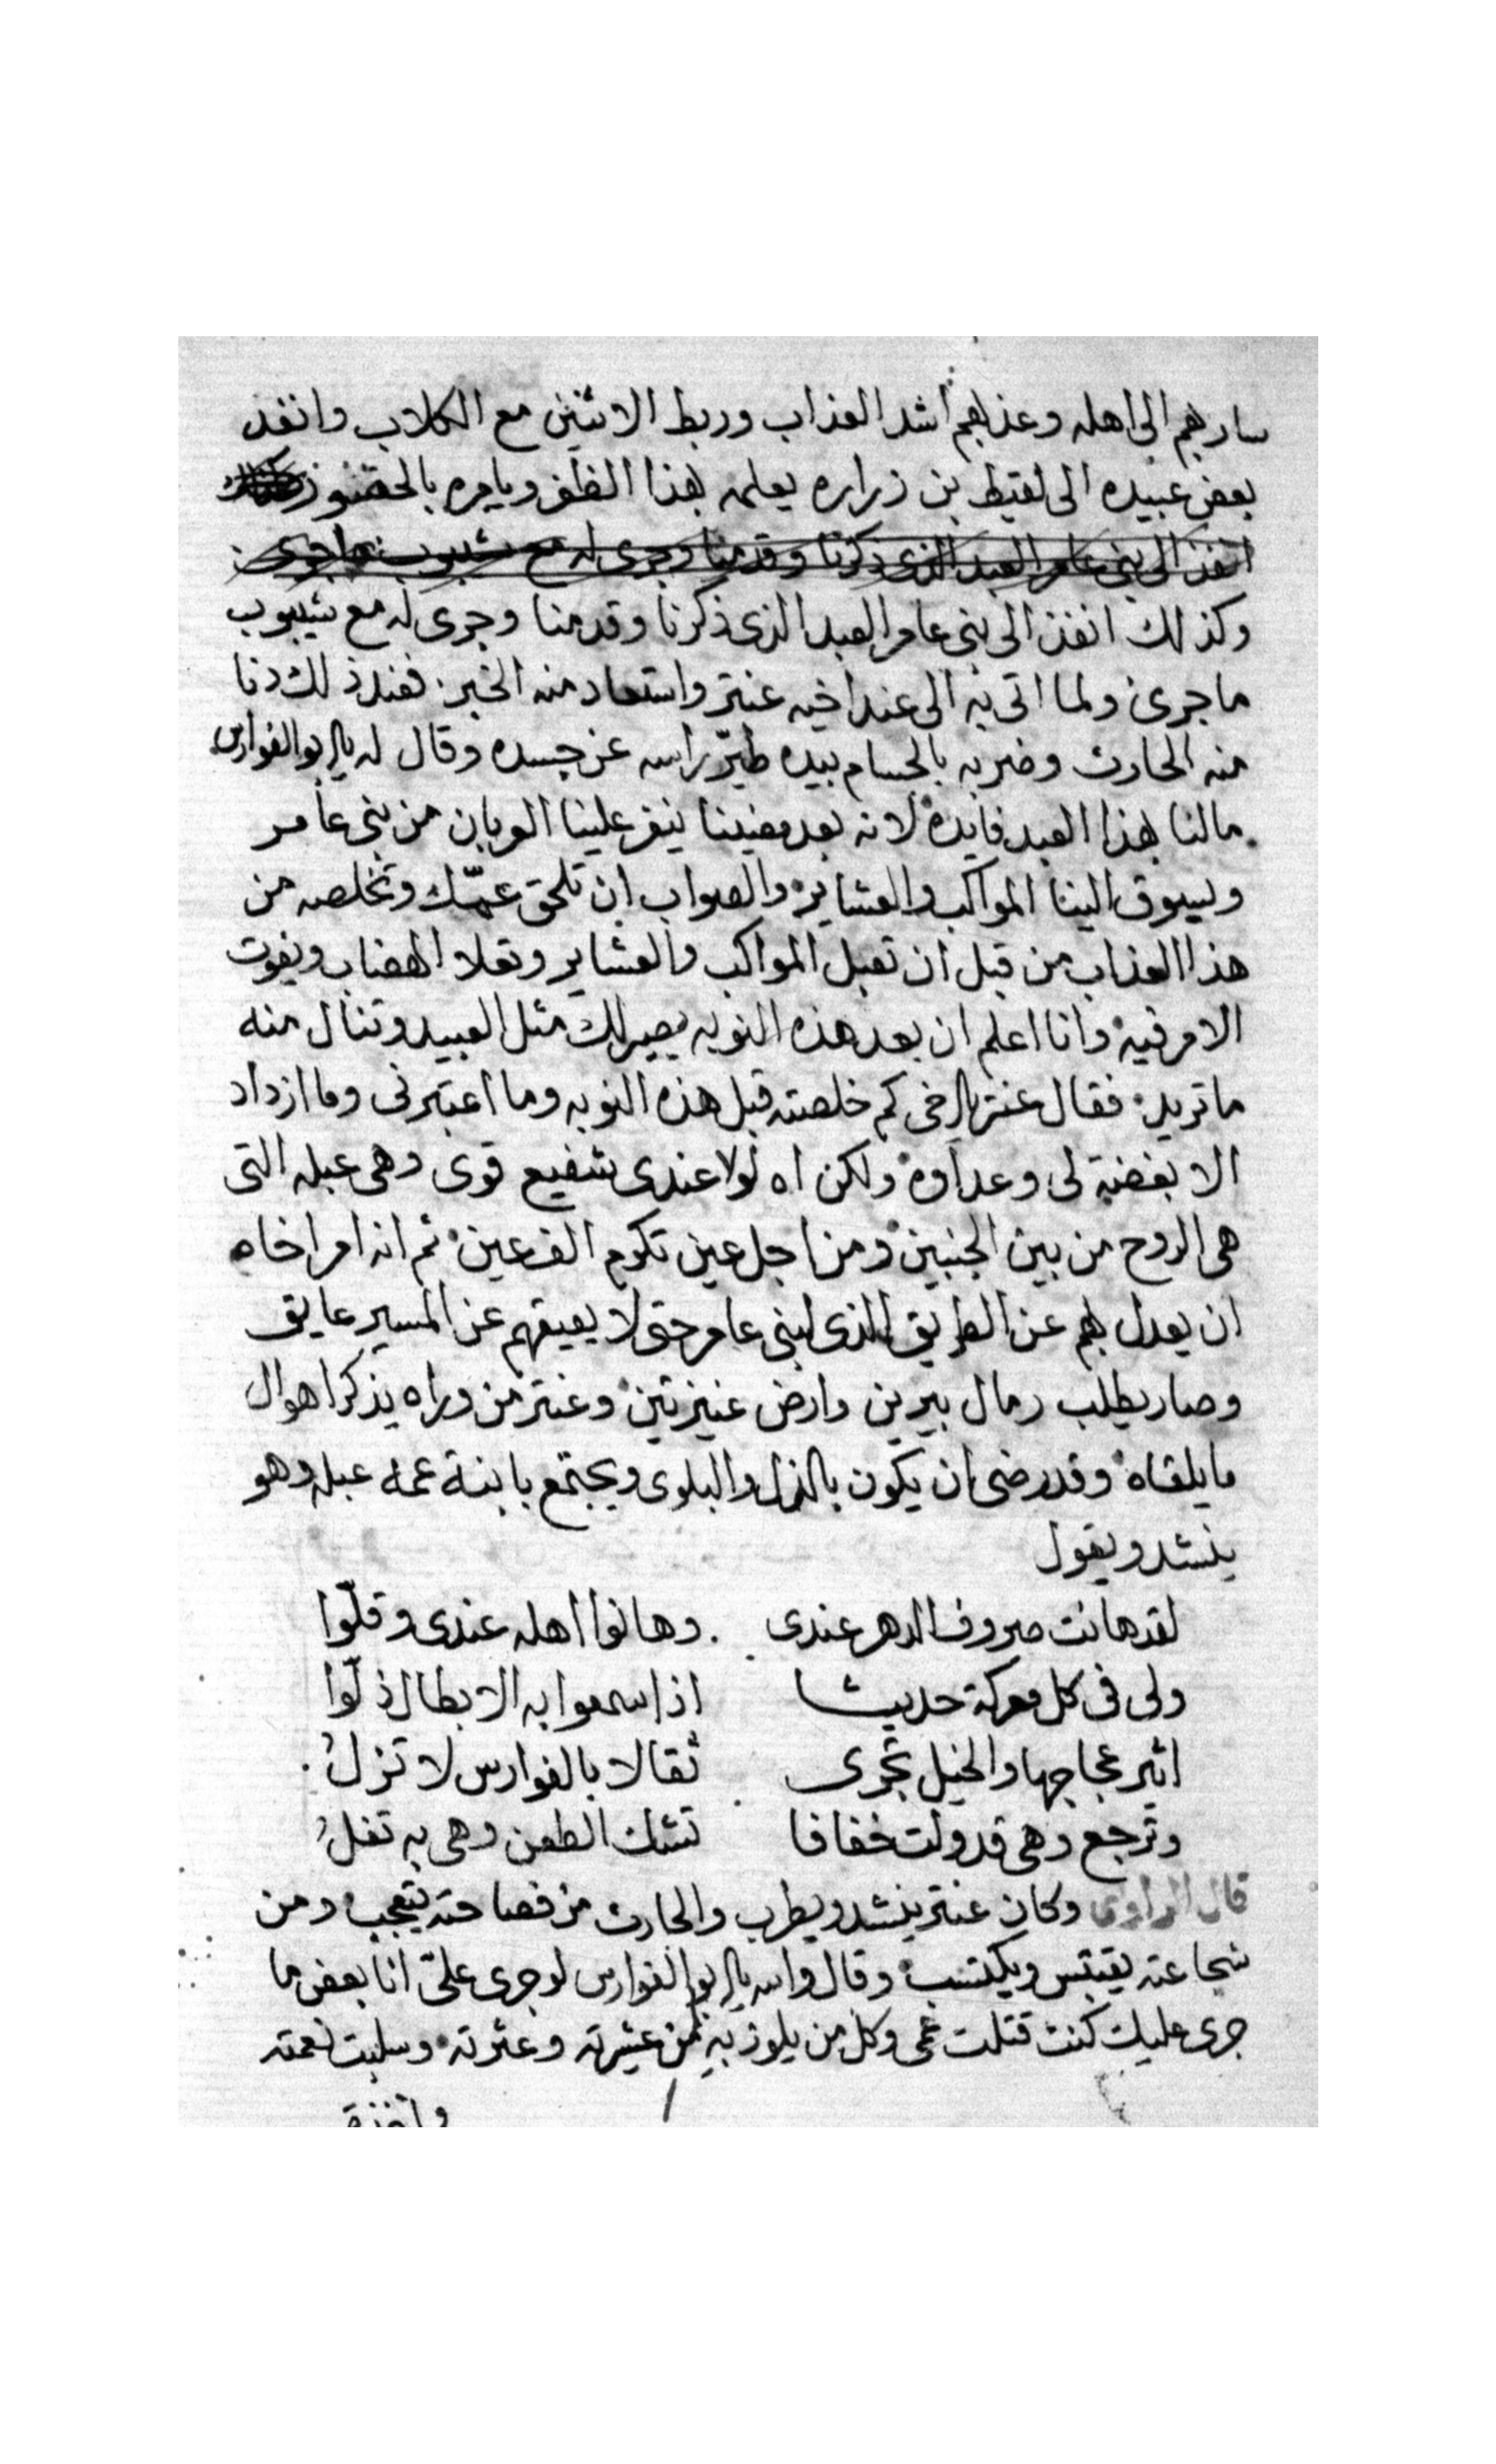 سار بهم الى اهله وعذبهم اشد العذاب وربط الاثنين مع الكلاب وانفذ
بعض عبيده الى لقيط بن زراره يعلمه بهذا الظفر ويامره بالحضور
انفذ الى بنى عامر العبد الذى ذكرنا وقدمنا وجرى له مع شيبوب ما جرى
وكذلك انفذ الى بنى عامر العبد الذى ذكرنا وقدمنا وجرى له مع شيبوب
ما جرى ولما اتى به الى عند اخيه عنتر واستعاد منه الخبر فعند ذلك دنا
منه الحارث وضربه بالحسام بيده طيّر راسه عن جسده وقال له يا ابو الفوارس
مالنا بهذا العبد فايدة لانه بعد مضينا ينفر علينا العربان من بنى عامر
ويسوق الينا المواكب والعشاير والصواب ان تلحق عمّك وتخلصه من
هذا العذاب من قبل ان تقبل المواكب والعشاير وتملا الهضاب ويفوت
الامر فيه وانا اعلم ان بعد هذه النوبه يصير لك مثل العبيد وتنال منه
ما تريد فقال عنتر يا اخى كم خلصته قبل هذه النوبه وما اعتبرنى وما ازداد
الا بغضة لى وعداوة ولكن اه لولا عندى شفيع قوى وهى عبله التى
هى الروح من بين الجنبين ومن اجل عين تكرم الف عين ثم انه امر اخاه
ان يعدل بهم عن الطريق الذى لبنى عامر حتى لا يعيقهم عن المسير عايق
وصار يطلب رمال يبرين وارض عنيزتين وعنتر من وراه يذكر اهوال
ما يلقاه وقد رضى ان يكون بالذل والبلوى ويجتمع بابنة عمه عبله وهو
ينشد ويقول
لقد هانت صروف الدهر عندى . وهانوا اهله عندى وقلّوا
ولى فى كل معركة حديثا اذا سمعوا به الابطال ذلّوا
اثير عجاجها والخيل تجرى ثقالا بالفوارس لا تزلُ
وترجع وهى قد ولت خفافا تشك الطعن وهى به تفلُ
قال الراوى وكان عنتر ينشد ويطرب والحارث من فصاحته يتعجب ومن
شجاعته يقتبس ويكتسب وقال والله يا ابو الفوارس لو جرى علىّ انا بعض ما
جرى عليك كنت قتلت عمى وكل من يلوذ به من عشيرته وعترته وسلبت نعمته